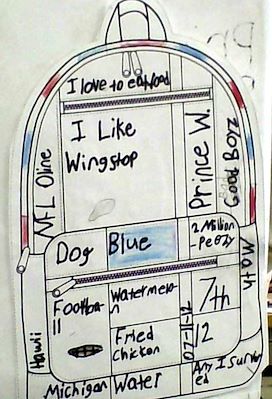 I love to eat food
I Like
Wingstop
NFL Oline
Prince W.
Good Boyz
Dog
Blue
2 Million
-Peezy
Math
Footba-
ll
Watermelo-
n
7th
Hawii
Fried
Chicken
07-11-12
12
Michigan
Water
Any I surv
ed